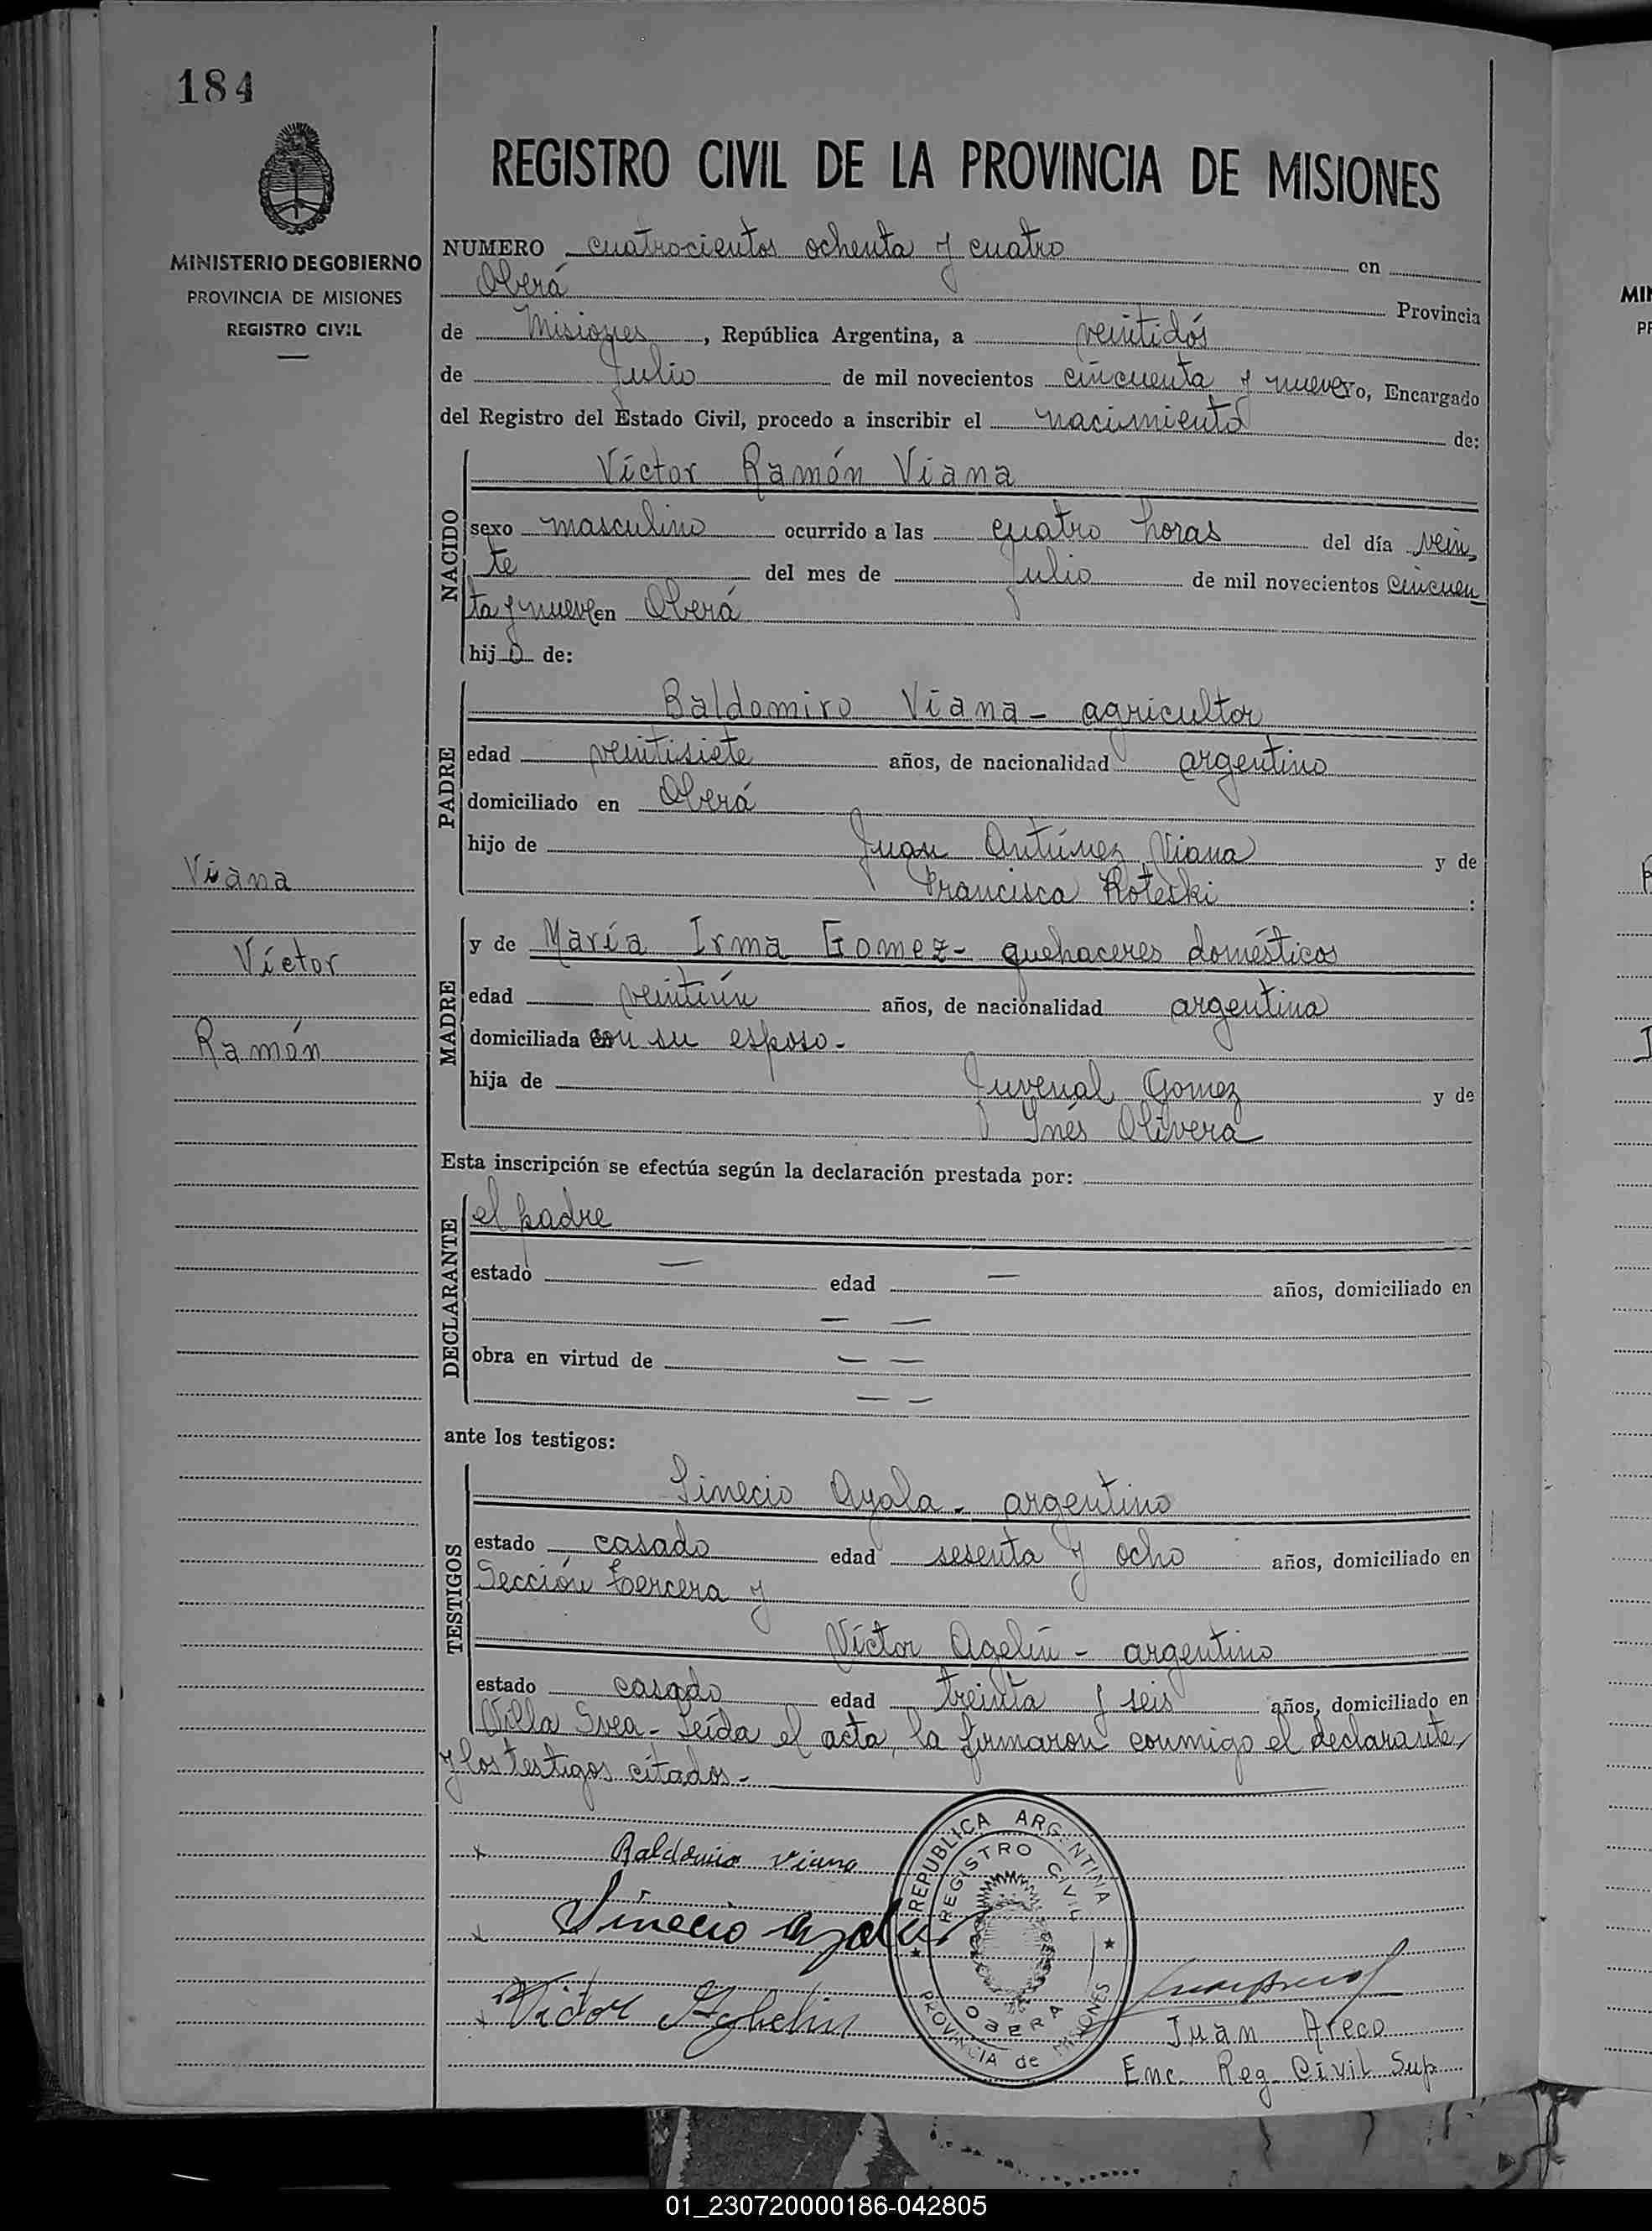 184
MINISTERIO DE GOBIERNO
PROVINCIA DE MISIONES
REGISTRO CIVIL
Viana
Víctor
Ramón
REGISTRO CIVIL DE LA PROVINCIA DE MISIONES
NUMERO cuatrocientos ochenta y cuatro en
Oberá Provincia
de Misiones, República Argentina, a veintidós
de Julio de mil novecientos cincuenta y nueve yo, Encargado
del Registro del Estado Civil, procedo a inscribir el nacimiento de:
NACIDO
Víctor Ramón Viana
sexo masculino ocurrido a las cuatro horas del día vein
te del mes de Julio de mil novecientos cincuen
ta y nueve en Oberá
hijo de:
PADRE
Baldomiro Viana - agricultor
edad veintisiete años, de nacionalidad argentino
domiciliado en Oberá
hijo de Juan Antúnez Viana y de
Francisca Koteski :
MADRE
y de María Irma Gomez - quehaceres domésticos
edad veintiún años, de nacionalidad argentina
domiciliada con su esposo.-
hija de Juvenal Gomez y de
Inés Olivera
Esta inscripción se efectúa según la declaración prestada por:
DECLARANTE
el padre
estado — edad — años, domiciliado en
— —
obra en virtud de — —
— —
ante los testigos:
TESTIGOS
Sinecio Ayala - argentino
estado casado edad sesenta y ocho años, domiciliado en
Sección tercera y
Víctor Agelin - argentino
estado casado edad treinta y seis años, domiciliado en
Villa Svea - Leída el acta, la firmaron conmigo el declarante
y los testigos citados.-
x Baldomiro Viana
x Sinecio Ayala
x Victor Aghelin
REPUBLICA ARGENTINA
REGISTRO CIVIL
OBERA
PROVINCIA de MISIONES
Juan Areco
Enc. Reg. Civil Sup.
01_230720000186-042805